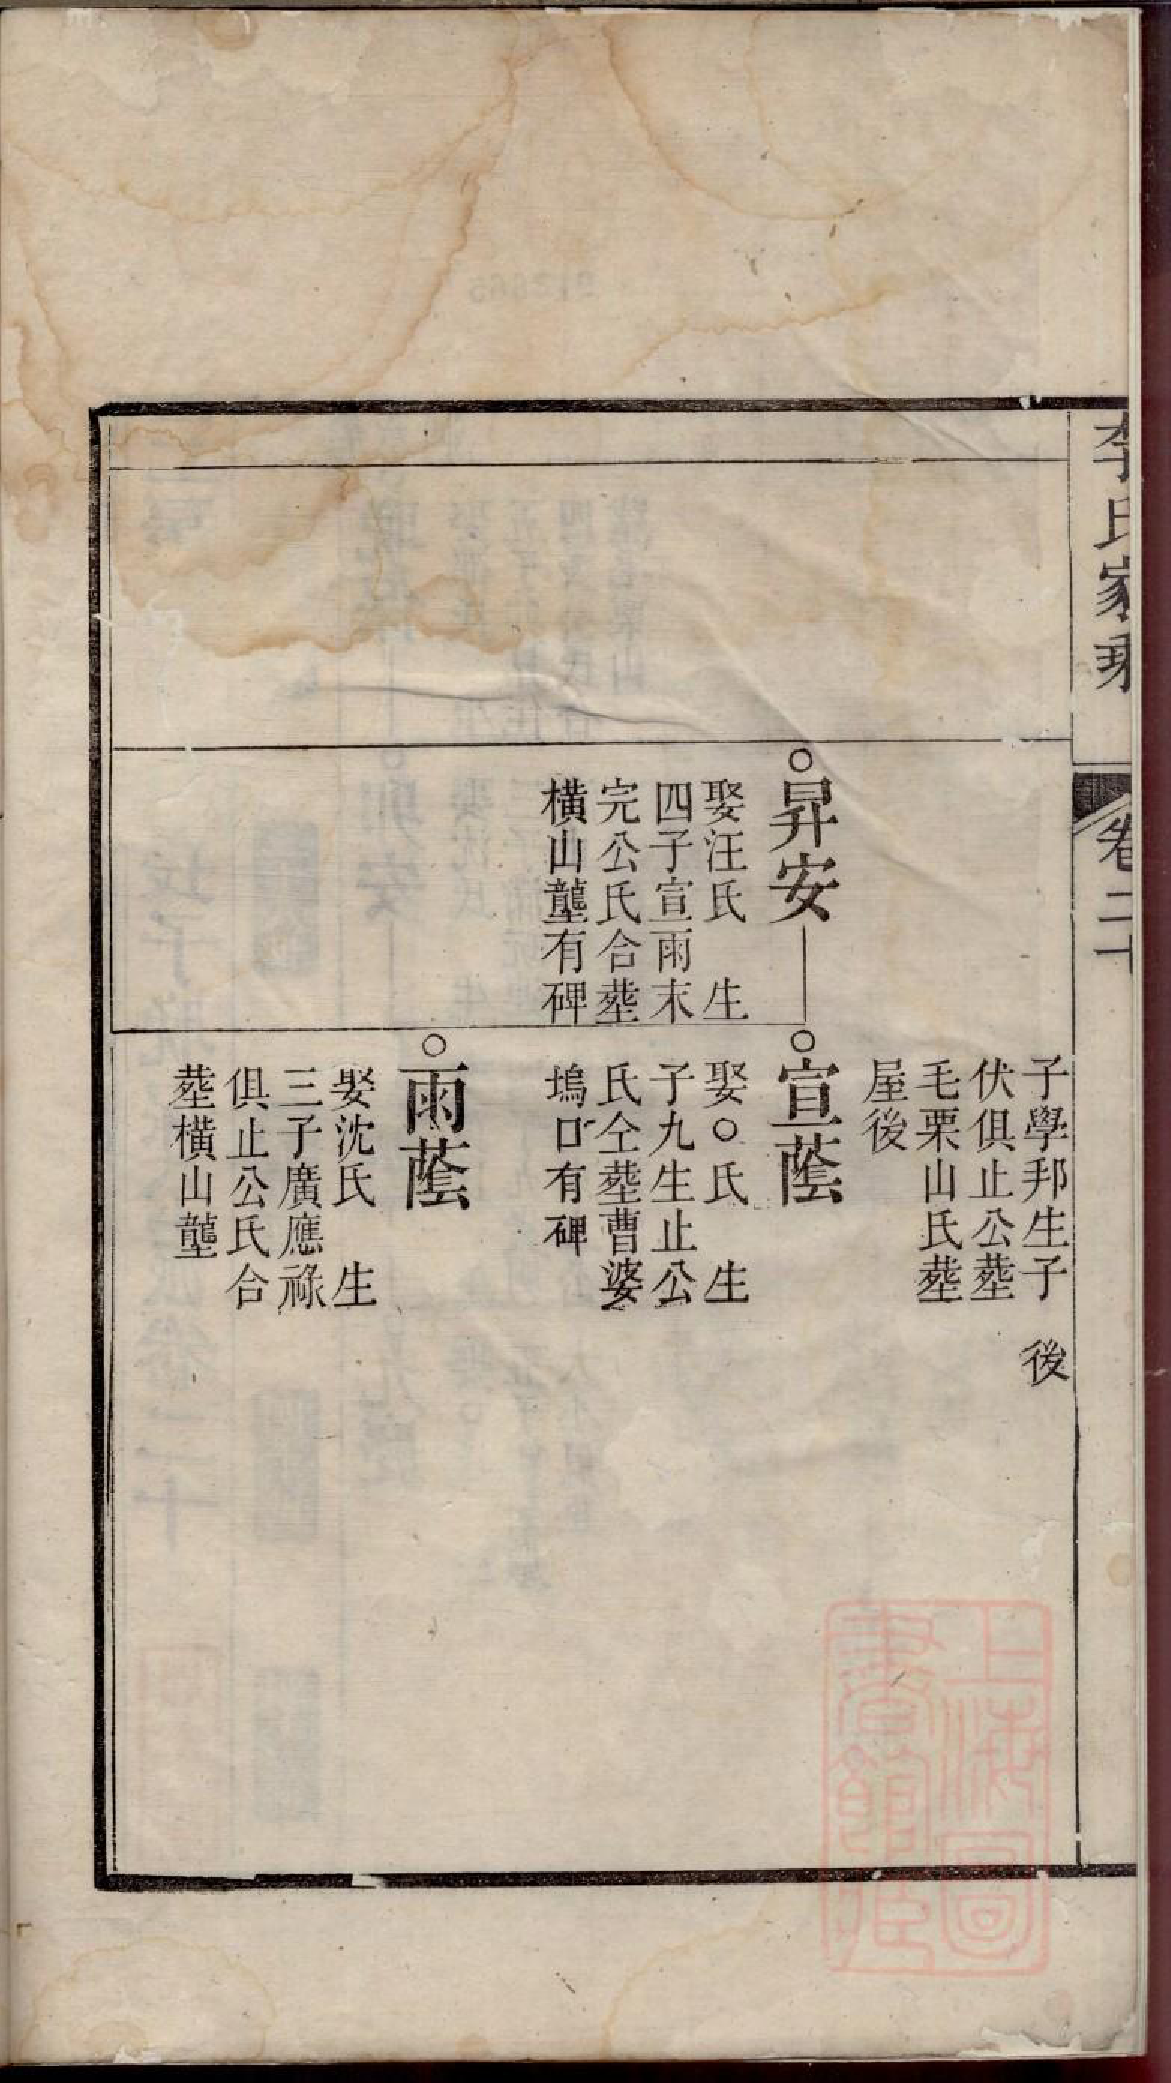 李氏家乘
卷二十
子學邦生子　後
伏俱止公塟
毛栗山氏塟
屋後
○昇安
娶汪氏　生
四子宣雨末
完公氏合塟
橫山壟有碑
○宣蔭
娶○氏　生
子九生止公
氏仝塟曹婆
塢口有碑
○雨蔭
娶沈氏　生
三子廣應祿
俱止公氏合
塟橫山壟
上海圖
書館藏